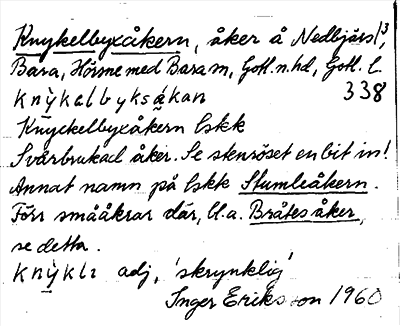 Knykelbyxåkern, åker å Nedbjärs 1³,
Bara, Hörsne med Bara sn, Gotl. n. hd, Gotl. l.
knỳkəlbyksåkan 338
Knyckelbyxåkern Lskk
Svårbrukad åker. Se stenröset en bit in!
Annat namn på Lskk Stumleåkern.
Förr smååkrar där, bl.a. Bråtes åker,
se detta.
knỳklı adj, 'skrynklig'
Inger Eriksson 1960